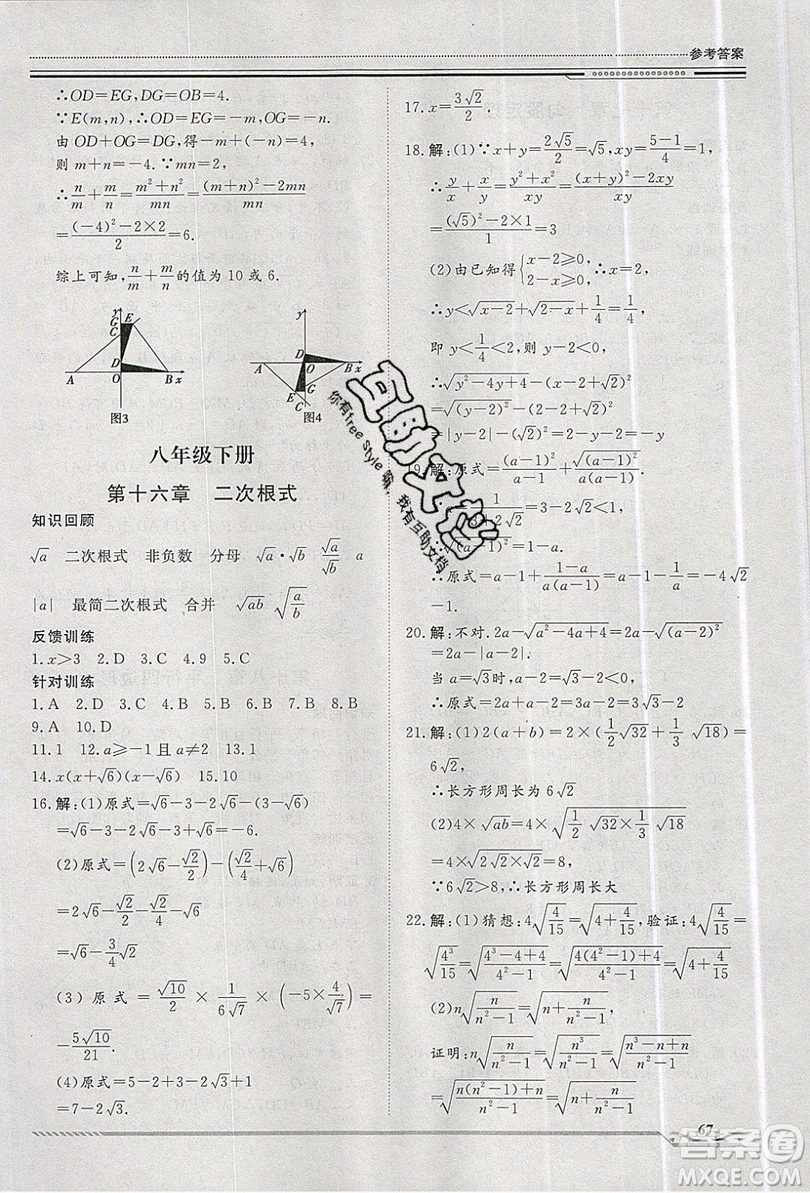 参考答案
∴OD=EG,DG=OB=4.
∵E(m,n),∴OD=EG=m,OG=-n.
由 OD+OG=DG=4,得 m+(-n)=4,
则 m+n=-4. ∵mn=2,
∴n/m+m/n=(m²+n²)/mn=((m+n)²-2mn)/mn
=((-4)²-2×2)/2=6.
综上可知,n/m+m/n的值为 10 或 6.
y G E C D A O B x
图3
y D A O B x G E C
图4
八年级下册
第十六章 二次根式
知识回顾
√a 二次根式 非负数 分母 √a·√b √a/√b a
|a| 最简二次根式 合并 √(ab) √(a/b)
反馈训练
1.x>3 2.D 3.C 4.9 5.D
针对训练
1.A 2.D 3.C 4.A 5.C 6.B 7.B 8.B
9.A 10.D
11.1 12.a≥-1且a≠2 13.1
14.x(x+√6)(x-√6) 15.10
16.解:(1)原式=√6-3-2√6-(3-√6)
=√6-3-2√6-3+√6=-6.
(2)原式=(2√6-√2/2)-(√2/4+√6)
=2√6-√2/2-√2/4-√6
=√6-3/4√2
(3)原式=√10/2×1/(6√7)×(-5×4√7/7)=
-5√10/21.
(4)原式=5-2+3-2√3+1
=7-2√3.
17.x=3√2/2.
18.解:(1)∵x+y=2√5/2=√5,xy=(5-1)/4=1,
∴y/x+x/y=(x²+y²)/xy=((x+y)²-2xy)/xy
=((√5)²-2×1)/1=3
(2)由已知得{x-2≥0, 2-x≥0,∴x=2.
∴y<√(x-2)+√(2-x)+1/4=1/4,
即 y<1/4<2,则 y-2<0.
∴√(y²-4y+4)-(2+√2)²
=√(y-2)²-(2-2+√2)²
=|y-2|-(√2)²=2-y-2=-y.
19.解:原式=(a-1)²/(a-1)-√(a-1)²/a(a-1)
∴√(a-1)²=1-a.
∴原式=a-1+(1-a)/a(a-1)=a-1-1/a=4√2
-1.
20.解:不对. 2a-√(a²-4a+4)=2a-√(a-2)²
=2a-|a-2|.
当 a=√3时,a-2=√3-2<0,
∴原式=2a+a-2=3a-2=3√3-2
21.解:(1)2(a+b)=2×(1/2√32+1/3√18)=
6√2,
∴长方形周长为6√2
(2)4×√(ab)=4×√(1/2√32×1/3√18)
=4×√(2√2×√2)=8,
∵6√2>8,∴长方形周长大
22.解:(1)猜想:4√(4/15)=√(4+4/15),验证:4√(4/15)=
√(4³/15)=√((4³-4+4)/(4²-1))=√((4(4²-1)+4)/(4²-1))=√(4+4/15)
(2)n√(n/(n²-1))=√(n+n/(n²-1)),
证明:n√(n/(n²-1))=√(n³/(n²-1))=√((n³-n+n)/(n²-1))
=√((n(n²-1)+n)/(n²-1))=√(n+n/(n²-1))
67
互助文档
你有free style嘛,我有互助文档
答案圈
MXQE.COM